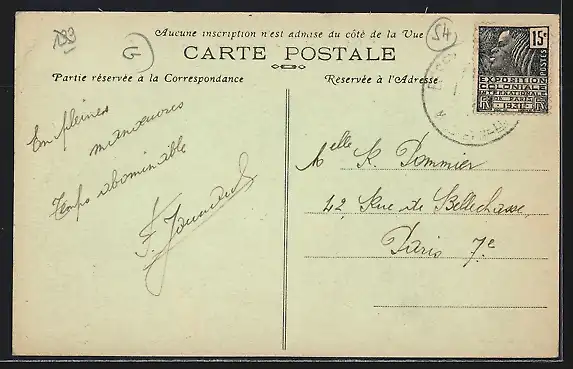 Aucune inscription n'est admise du côté de la Vue
CARTE POSTALE
Partie réservée à la Correspondance
Reservée à l'Adresse
G
54
15c
POSTES
EXPOSITION
COLONIALE
INTERNATIONALE
DE PARIS
1931
En pleines
manœuvres
Temps abominable
Melle K. Pommier
42, Rue de Bellechasse
Paris 7e